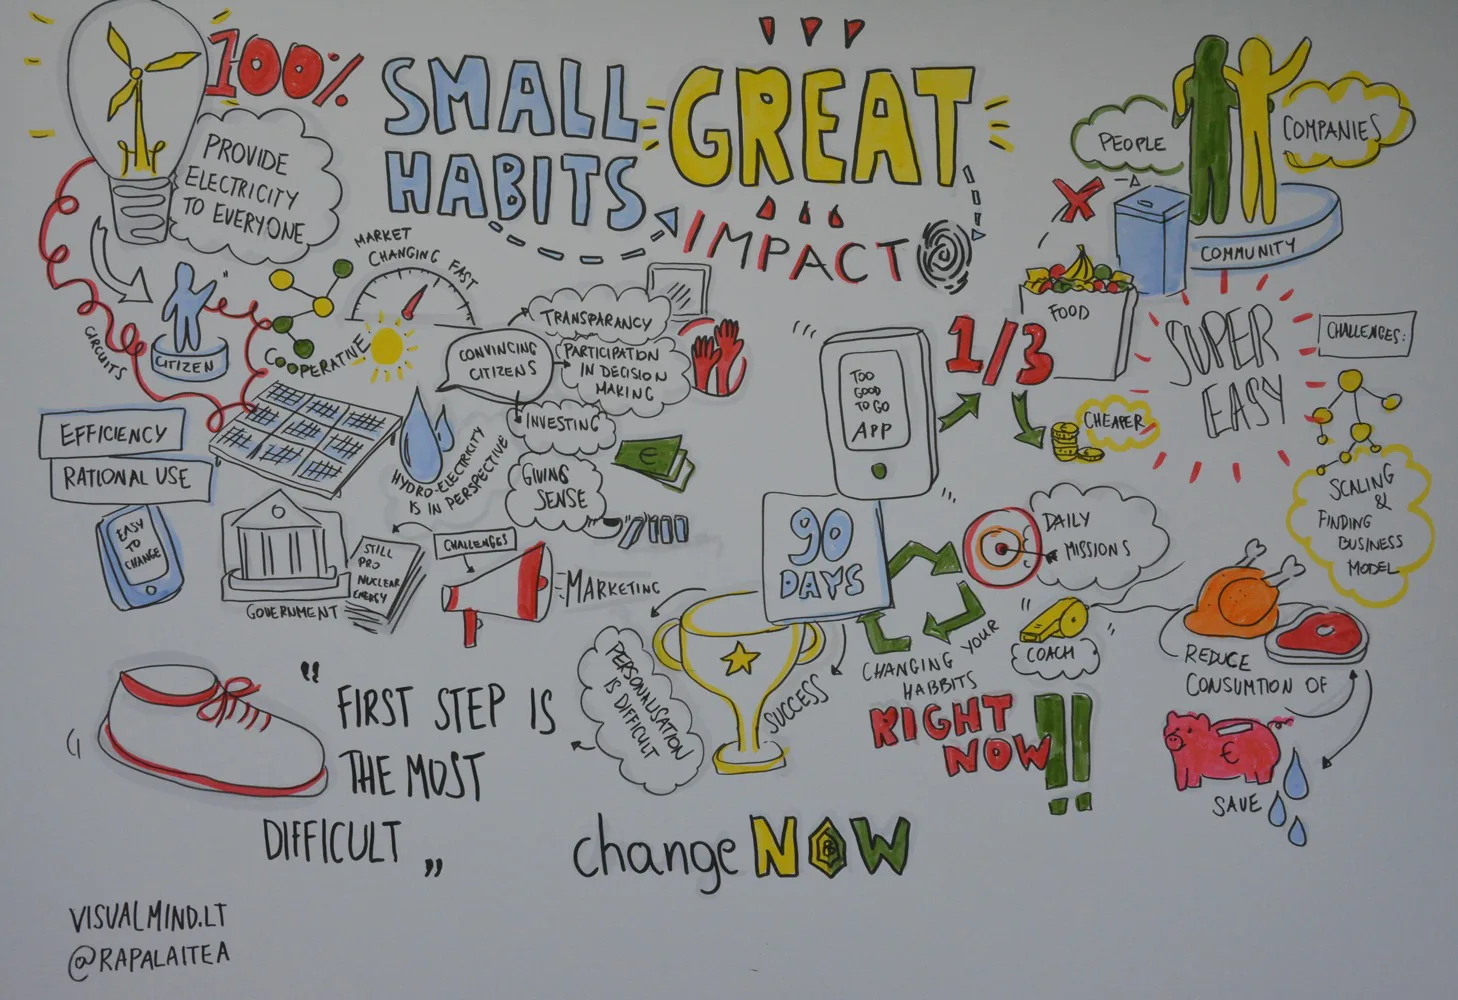 100%
PROVIDE
ELECTRICITY
TO EVERYONE
SMALL
HABITS
GREAT
IMPACT
PEOPLE
COMPANIES
COMMUNITY
CIRCUITS
CITIZEN
COOPERATIVE
MARKET
CHANGING FAST
CONVINCING
CITIZENS
TRANSPARANCY
PARTICIPATION
IN DECISION
MAKING
INVESTING
€
GIVING
SENSE
HYDRO-ELECTRICITY
IS IN PERSPECTIVE
EFFICIENCY
RATIONAL USE
EASY
TO
CHANGE
GOVERNMENT
STILL
PRO
NUCLEAR
ENERGY
CHALLENGES
MARKETING
TOO
GOOD
TO GO
APP
1/3
FOOD
CHEAPER
SUPER
EASY
CHALLENGES:
SCALING
&
FINDING
BUSINESS
MODEL
90
DAYS
DAILY
MISSIONS
COACH
CHANGING YOUR
HABBITS
RIGHT
NOW!!
REDUCE
CONSUMTION OF
€
SAVE
SUCCESS
PERSONALISATION
IS DIFFICULT
" FIRST STEP IS
THE MOST
DIFFICULT „
change NOW
VISUALMIND.LT
@RAPALAITEA